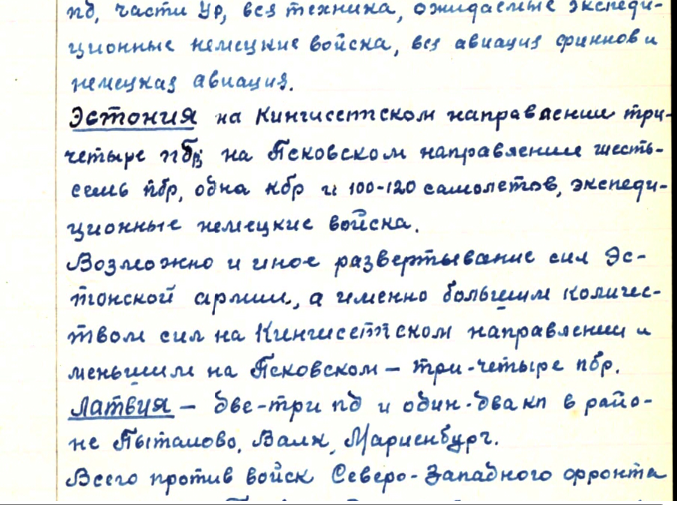 пд, части УР, вся техника, ожидаемые экспеди-
ционные немецкие войска, вся авиация финнов и
немецкая авиация.
Эстония на Кингисеппском направлении три-
четыре пбр, на Псковском направлении шесть-
семь пбр, одна кбр и 100-120 самолетов, экспеди-
ционные немецкие войска.
Возможно и иное развертывание сил Эс-
тонской армии, а именно большим количес-
твом сил на Кингисеппском направлении и
меньшим на Псковском – три-четыре пбр.
Латвия – две-три пд и один-два кп в райо-
не Пыталово, Валк, Мариенбург.
Всего против войск Северо-Западного фронта